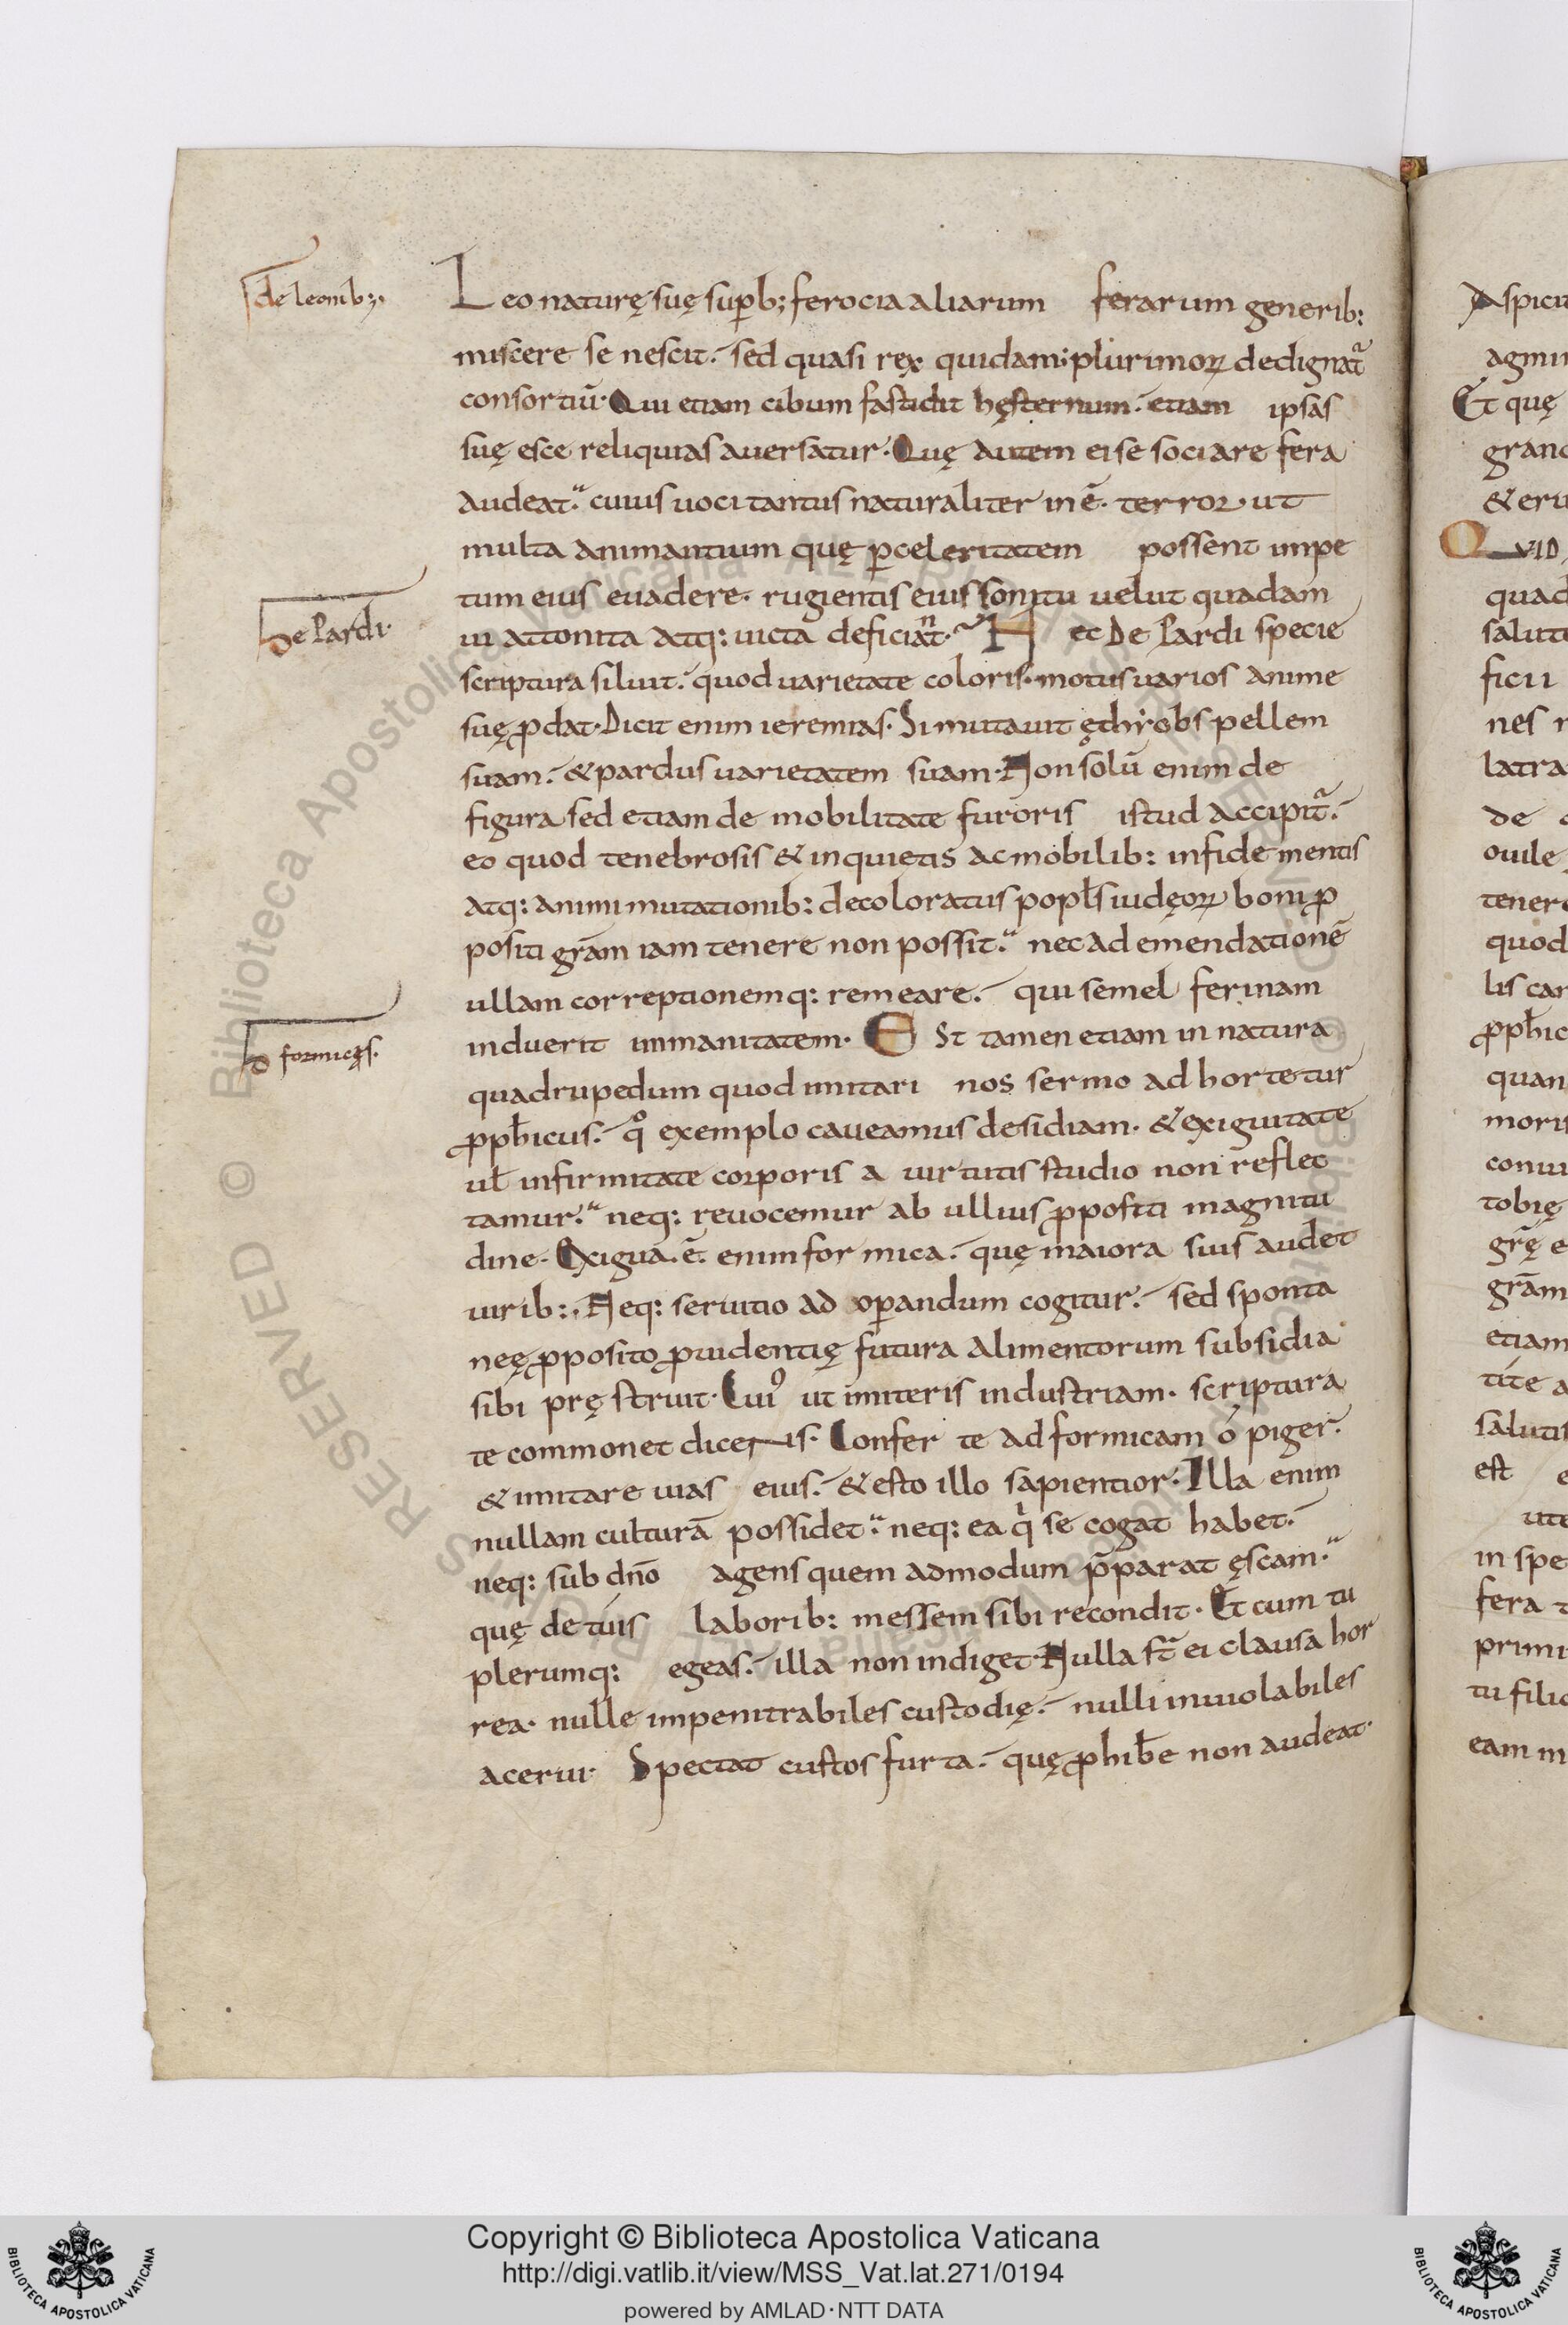 de leonib;.
Leo naturę suę sup̱b; ferocia aliarum ferarum generib:
miscere se nescit. sed quasi rex quidam: plurimoꝝ dedignat̃
consortiũ. Qui etiam cibum fastidit hęsternum. etiam ipsas
suę esce reliquias aversatur. Quę autem ei se sociare fera
audeat. cuius voci tantus naturaliter in ē. terror. ut
multa animantium quę ꝑceleritatem possent impe
tum eius evadere. rugientis eius sonitu velut quadam
De Pardi.
vi attonita atq: victa deficiant. Nec De Pardi specie
scriptura siluit. quod varietate coloris. motus varios anime
suę ꝓdat. Dicit enim ieremias. Si mutavit ęthyobs pellem
suam. & pardus varietatem suam. Non solũ enim de
figura sed etiam de mobilitate furoris istud accipit̃.
eo quod tenebrosis & inquietis ac mobilib: infide mentis
atq: animi mutationib: decoloratus popl̄s iudęoꝝ boni ꝓ
positi grãm iam tenere non possit. nec ad emendationē
ullam correptionemq: remeare. qui semel ferinam
induerit immanitatem. ESt tamen etiam in natura
D formicęs.
quadrupedum quod imitari nos sermo ad hortetur
ꝓph̄icus. qͦ exemplo caveamus desidiam. & exiguitate
ul̄ infirmitate corporis a virtutis studio non reflec
tamur. neq: revocemur ab ullius ꝓpositi magnitu
dine. Exigua. ē. enim formica. quę maiora suis audet
virib:. Neq: servitio ad oꝑandum cogitur. sed sponta
neę ꝓposito ꝓvidentię futura alimentorum subsidia
sibi pręstruit. Cuiꝰ ut imiteris industriam. scriptura
te commonet dicens. Confer te ad formicam ó piger.
& imitare vias eius. & esto illo sapientior. Illa enim
nullam culturã possidet. neq: ea qͥ se cogat habet.
neq: sub dn̄o agens quem admodum p̄parat ęscam.
quę de tuis laborib: messem sibi recondit. Et cum tu
plerumq: egeas. illa non indiget. Nulla st̃ ei clausa hor
rea. nulle impenitrabiles custodię. nulli inviolabiles
acervi. Spectat custos furta. quę ꝓhib̄e non audeat.
Aspici
Et quę
& eru
QVID
quad
ficii
nes
latra
de
ovile
tener
quod
lis car
ꝓph̄ic
quan
moris
conui
tobię
grãm
etiam
salutis
est
ute
in spe
fera
primi
tu filio
eam in
Copyright © Biblioteca Apostolica Vaticana
http://digi.vatlib.it/view/MSS_Vat.lat.271/0194
powered by AMLAD·NTT DATA
BIBLIOTECA APOSTOLICA VATICANA
BIBLIOTECA APOSTOLICA VATICANA